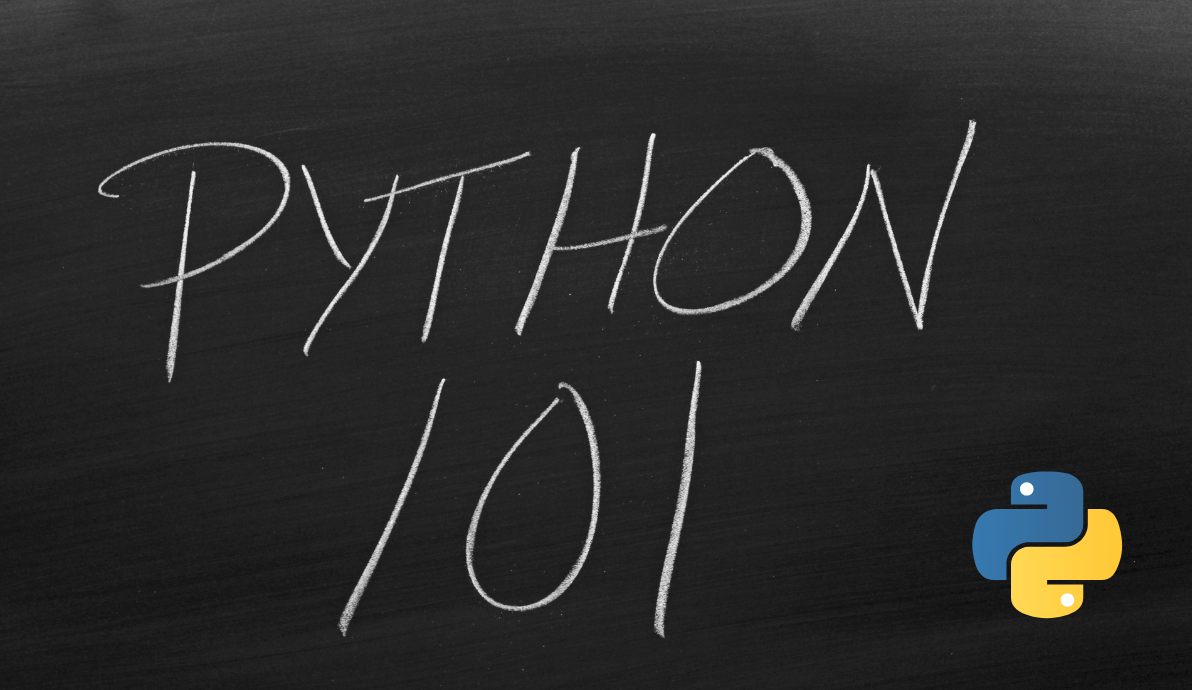 PYTHON
101